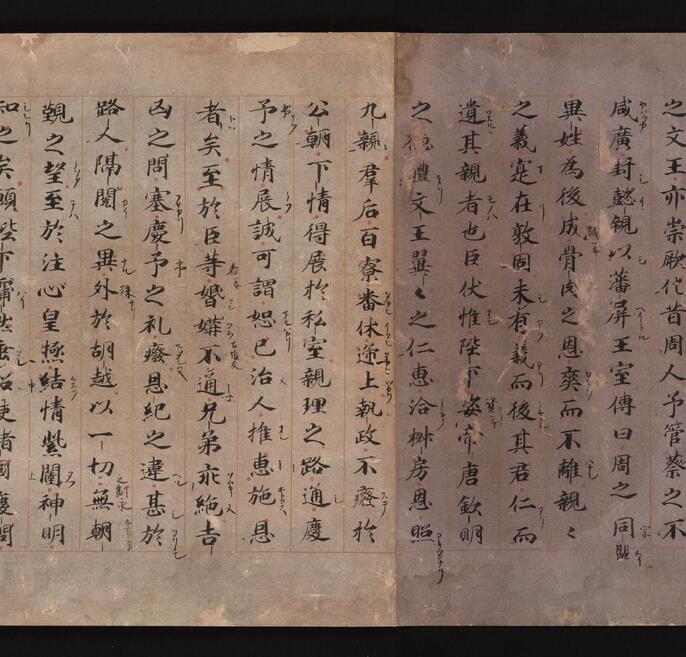 之文王亦崇厥化昔周人予管蔡之不
咸廣封懿親以藩屏王室傳曰周之同盟
異姓為後成骨肉之恩爽而不離親〻
之義寔在敦固未有義而後其君仁而
遺其親者也臣伏惟陛下姿帝唐欽明
之德體文王翼〻之仁惠洽椒房恩照
九親羣后百寮番休遞上執政不廢於
公朝下情得展於私室親理之路通慶
予之情展誠可謂恕已治人推惠施恩
者矣至於臣等婚媾不通兄弟乖絶吉
凶之問塞慶予之礼廢恩紀之違甚於
路人隔閡之異外於胡越以一切無朝
覲之望至於注心皇極結情紫闥神明
知之矣願陛下